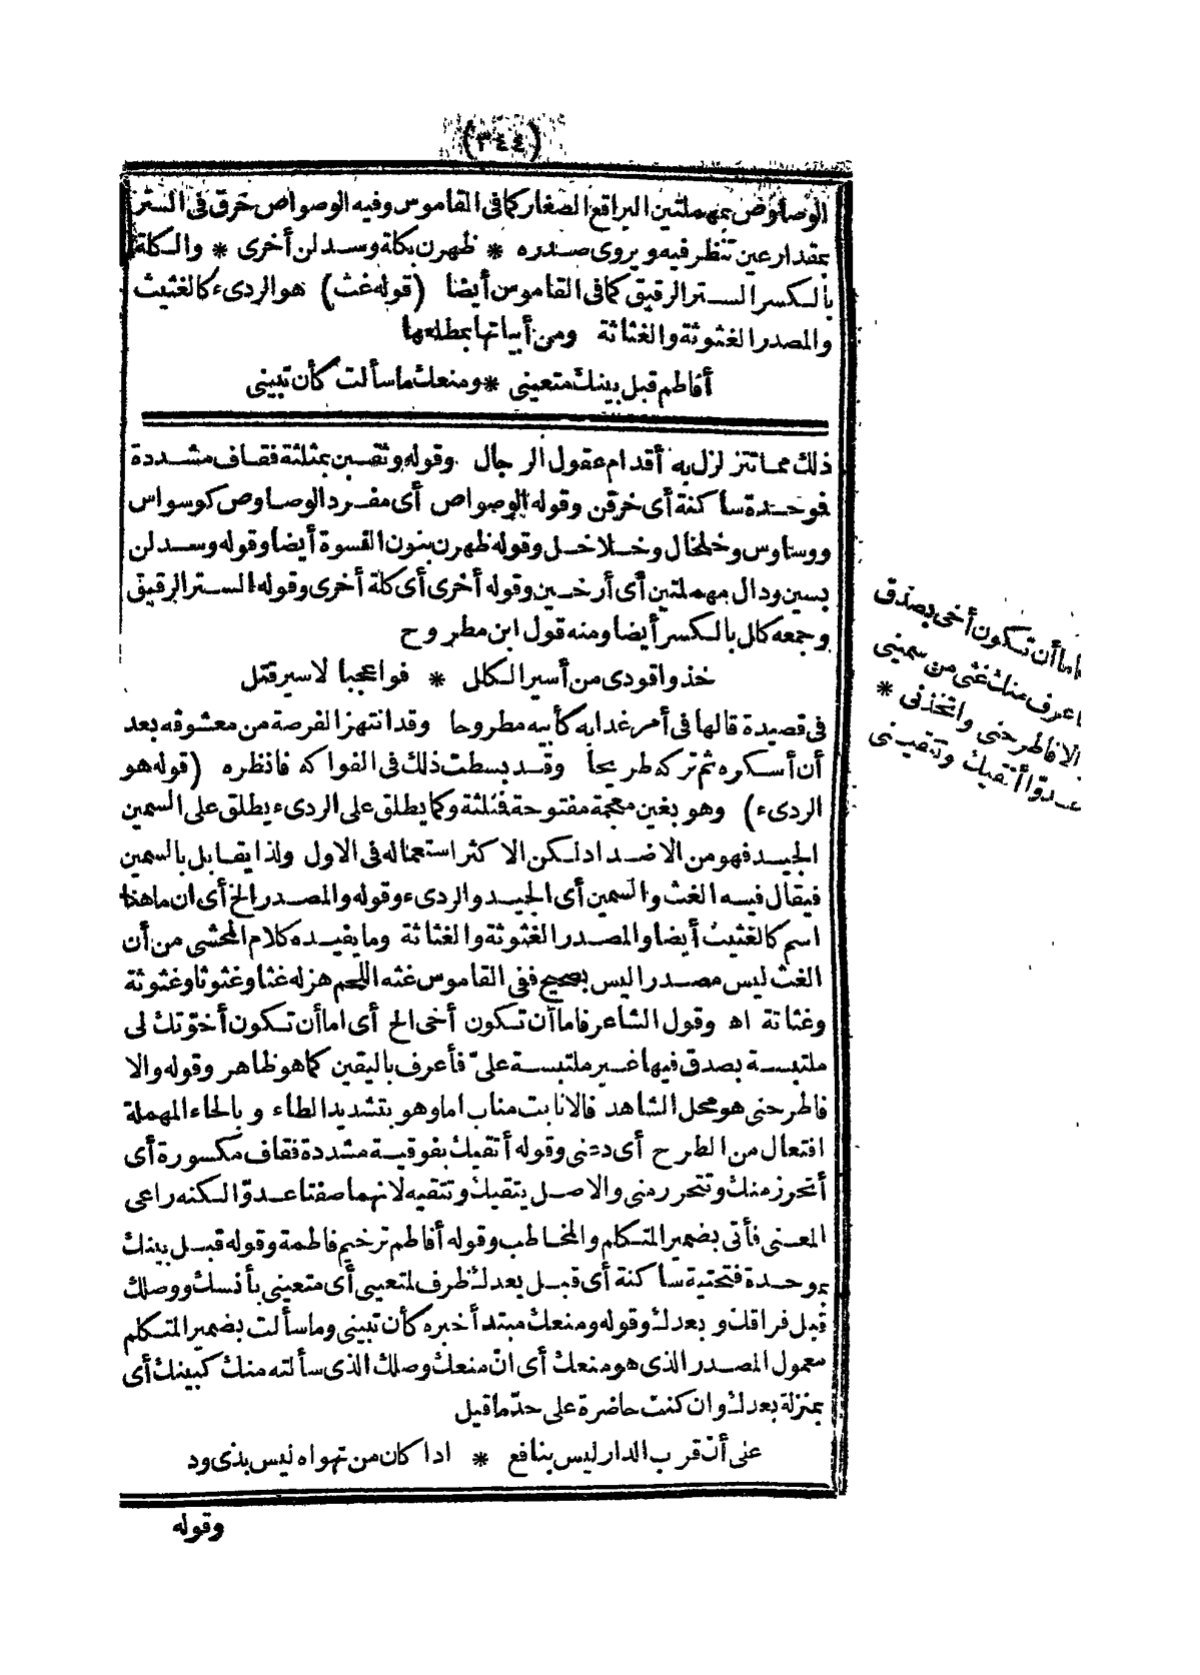 (٣٤٤)
الوصاوص بمهملتين البراقع الصغار كما فى القاموس وفيه الوصواص خرق فى الستر
بمقدار عين تنظر فيه ويروى صدره * ظهرن بكلة وسدلن أخرى * والكلة
بالكسر الستر الرقيق كما فى القاموس أيضا (قوله غث) هو الردىء كالغثيث
والمصدر الغثوثة والغثاثة ومن أبياتها بمطلعها
أفاطم قبل بينك متعينى * ومنعك ما سألت كأن تبينى
ذلك مما تتزلزل به أقدام عقول الرجال وقوله وثقبن بمثلثة فقاف مشددة
فوحدة ساكنة أى خرقن وقوله الوصواص أى مفرد الوصاوص كوسواس
ووساوس وخلخال وخلاخل وقوله ظهرن بنون النسوة أيضا وقوله وسدلن
بسين ودال مهملتين أى أرخين وقوله أخرى أى كلة أخرى وقوله الستر الرقيق
وجمعه كال بالكسر أيضا ومنه قول ابن مطروح
خذوا قودى من أسير الكلل * فواعجبا لاسير قتل
فى قصيدة قالها فى أمر غدا به كأبيه مطروحا وقد انتهز الفرصة من معشوقه بعد
أن أسكره ثم تركه طريحا وقد بسطت ذلك فى الفواكه فانظره (قوله هو
الردىء) وهو بغين معجمة مفتوحة فثلثة وكما يطلق على الردىء يطلق على السمين
الجيد فهو من الاضداد لكن الاكثر استعماله فى الاول ولذا يقابل بالسمين
فيقال فيه الغث والسمين أى الجيد والردىء وقوله والمصدر الخ أى ان ما هذا
اسم كالغثيث أيضا والمصدر الغثوثة والغثاثة وما يفيده كلام المحشى من أن
الغث ليس مصدرا ليس بصحيح ففى القاموس غثه اللحم هزله غثا وغثوثا وغثوثة
وغثاثة اه وقول الشاعر فاما أن تكون أخى الخ أى اما أن تكون أخوّتك لى
ملتبسة بصدق فيها غير ملتبسة علىّ فأعرف باليقين كما هو ظاهر وقوله والا
فاطرحنى هو محل الشاهد فالا نابت مناب اما وهو بتشديد الطاء وبالحاء المهملة
افتعال من الطرح أى دعنى وقوله أتقيك بفوقية مشددة فقاف مكسورة أى
أتحرز منك وتتحرز منى والاصل يتقيك وتتقيه لانهما صفتا عدوّا لكنه راعى
المعنى فأتى بضمير المتكلم والمخاطب وقوله أفاطم ترخيم فاطمة وقوله قبل بينك
بموحدة فتحتية ساكنة أى قبل بعدك ظرف لمتعينى أى متعينى بأنسك ووصلك
قبل فراقك وبعدك وقوله ومنعك مبتدأ خبره كأن تبينى وما سألت بضمير المتكلم
معمول المصدر الذى هو منعك أى انّ منعك وصلك الذى سألته منك كبينك أى
بمنزلة بعدك وان كنت حاضرة على حدّ ما قيل
على أنّ قرب الدار ليس بنافع * اذا كان من تهواه ليس بذى ود
وقوله
فاما أن تكون أخى بصدق
فاعرف منك غثى من سمينى
والا فاطرحنى واتخذنى *
عدوّا أتقيك وتتقينى